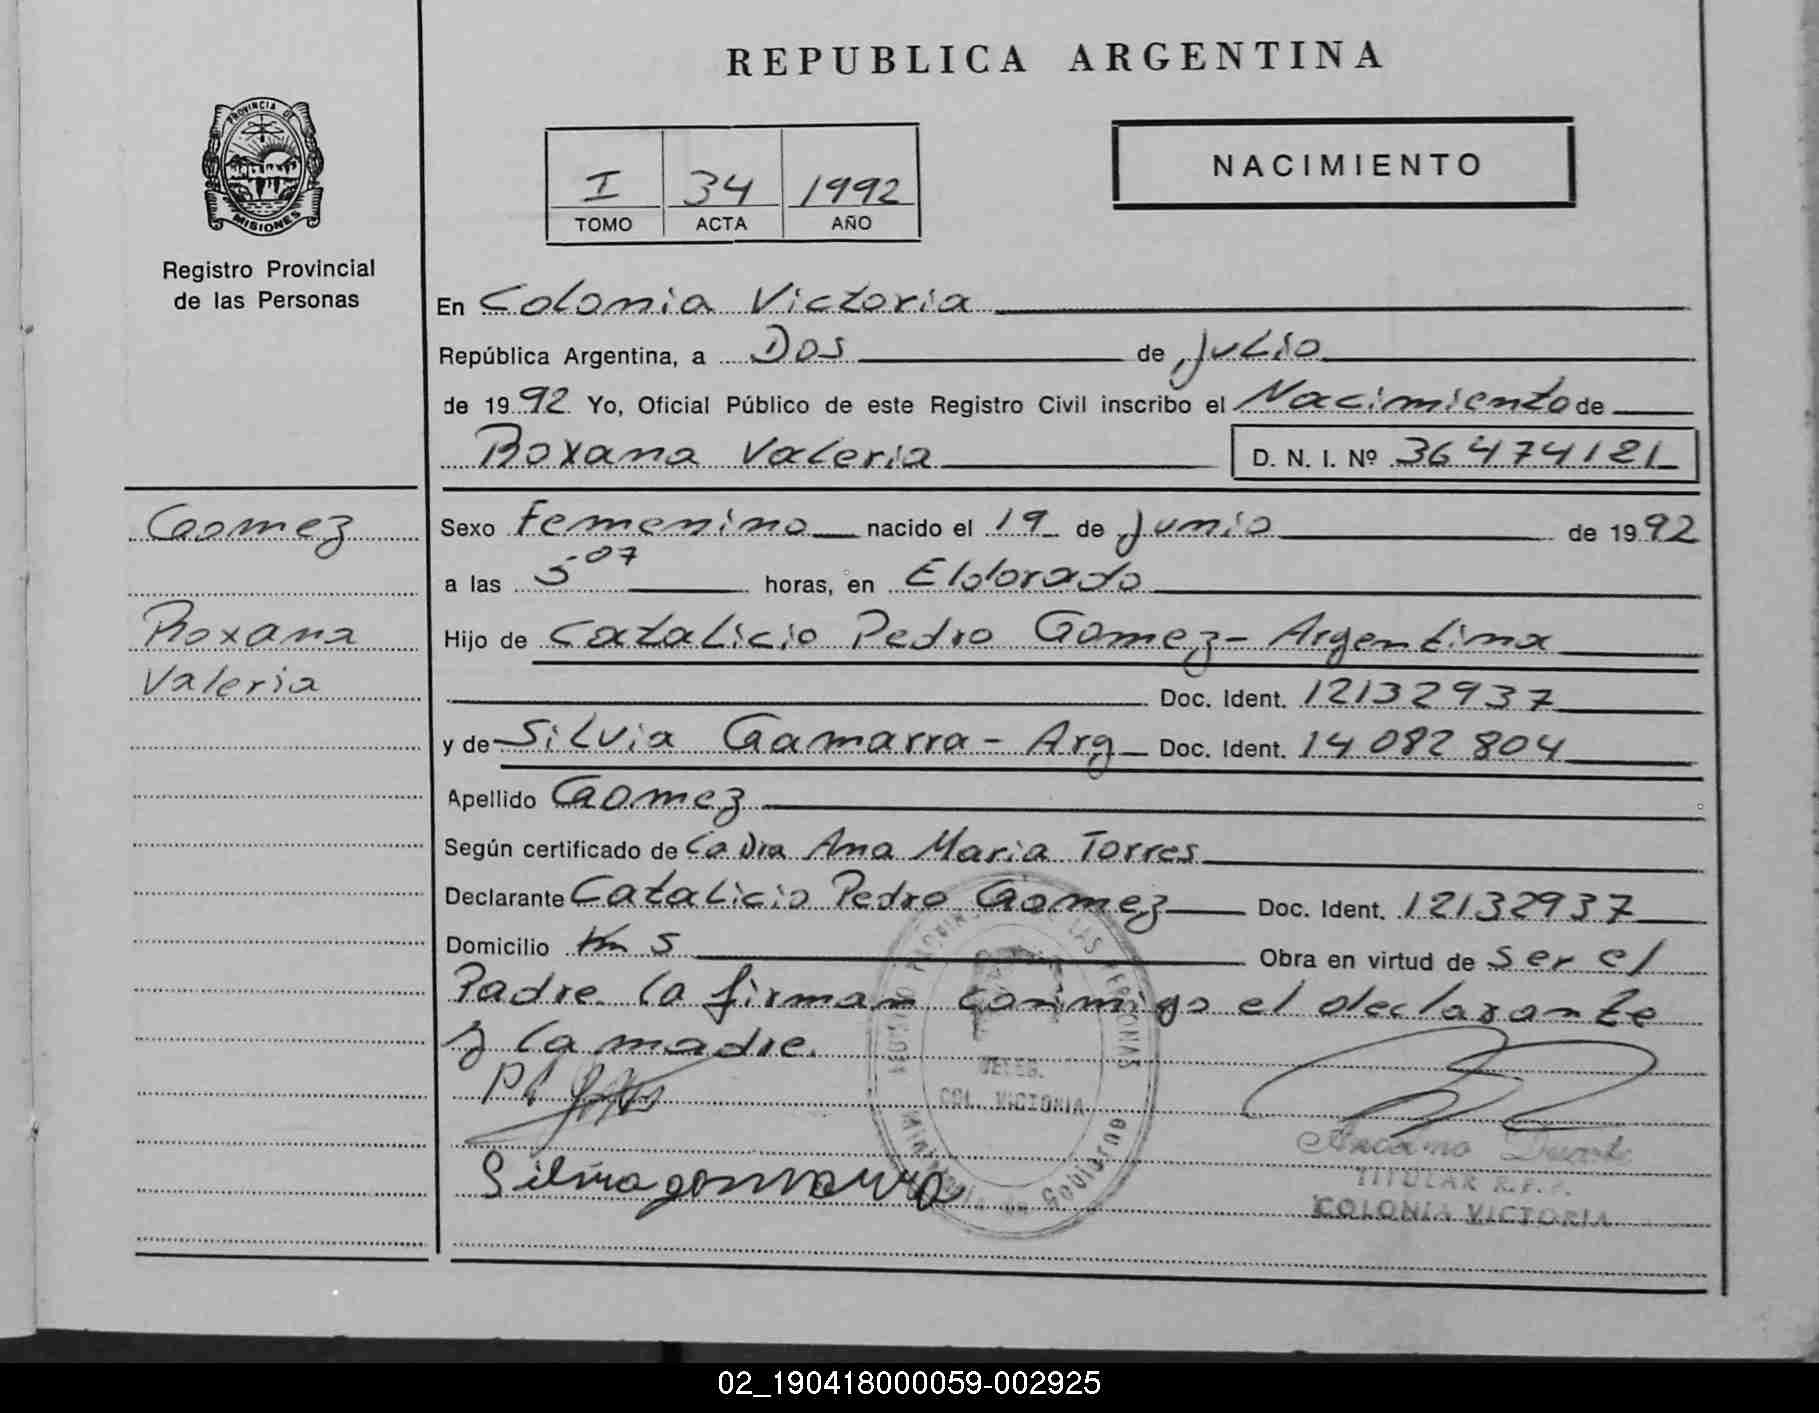 REPUBLICA ARGENTINA
PROVINCIA DE
MISIONES
Registro Provincial
de las Personas
I 34 1992
TOMO ACTA AÑO
NACIMIENTO
En Colonia Victoria
República Argentina, a Dos de Julio
de 1992 Yo, Oficial Público de este Registro Civil inscribo el Nacimiento de
Roxana Valeria D. N. I. Nº 36474121
Gomez
Roxana
Valeria
Sexo Femenino nacido el 19 de Junio de 1992
a las 5 07 horas, en Eldorado
Hijo de Catalicio Pedro Gomez - Argentina
Doc. Ident. 12132937
y de Silvia Gamarra - Arg Doc. Ident. 14 082 804
Apellido Gomez
Según certificado de la Dra Ana Maria Torres
Declarante Catalicio Pedro Gomez Doc. Ident. 12132937
Domicilio Km 5 Obra en virtud de ser el
Padre. la firman conmigo el declarante
y la madre.
DELEG.
COL. VICTORIA
Ministerio de Gobierno
Silvia gamarra
Anselmo Duarte
TITULAR R.P.P.
COLONIA VICTORIA
02_190418000059-002925